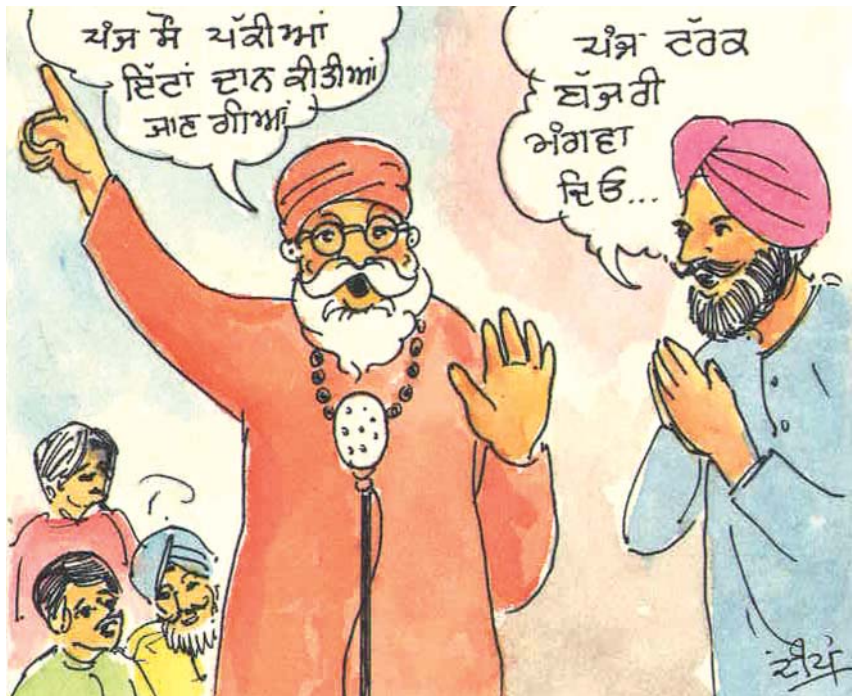 ਪੰਜ ਸੌ ਪੱਕੀਆਂ
ਇੱਟਾਂ ਦਾਨ ਕੀਤੀਆਂ
ਜਾਣ ਗੀਆਂ
ਪੰਜ ਟਰੱਕ
ਬੱਜਰੀ
ਮੰਗਵਾ
ਦਿਓ...